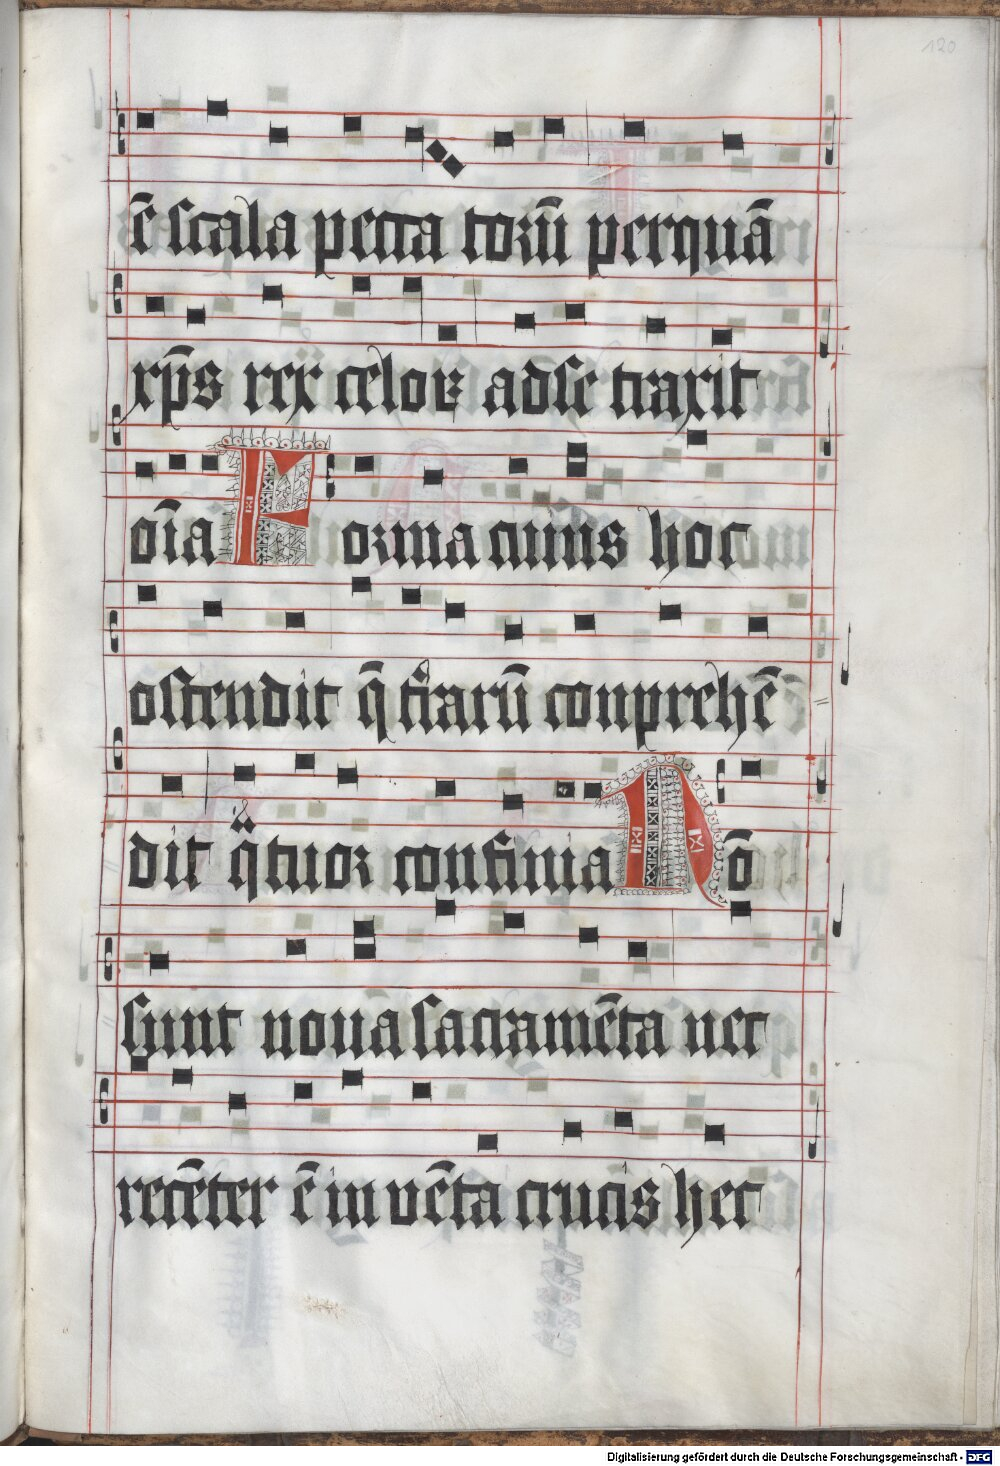 120
ē scala pecca torū perquā
xp̄s rex celoꝝ adse traxit
oīa Forma cuius hoc
ostendit q̄ t͛rarū conprehē
dit q̈tuor confinia Nō
sunt noua sacramēta nec
recēter ē in uēta crucis hec
Digitalisierung gefördert durch die Deutsche Forschungsgemeinschaft - DFG